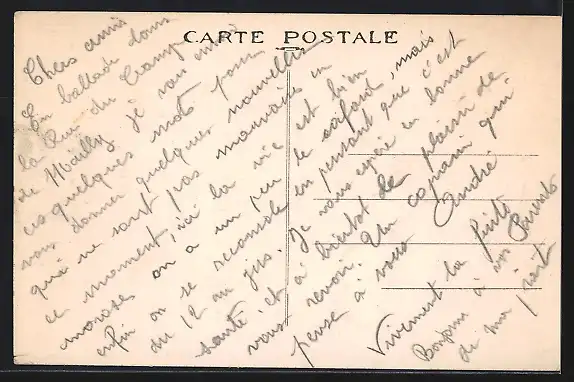 CARTE POSTALE
Chers amis
En ballade dans
la Rue du Camp
de Mailly je vous envoie
ces quelques mots pour
vous donner quelques nouvelles
qui ne sont pas mauvaises en
ce moment, ici la vie est bien
morose on a un peu le cafard, mais
enfin on se reconsole en pensant que c'est
du 12 au jus. Je vous espère en bonne
santé et à bientôt le plaisir de
vous revoir. Un copain qui
pense à vous André
Vivement la fuite
Bonjour à vos Parents
de ma part